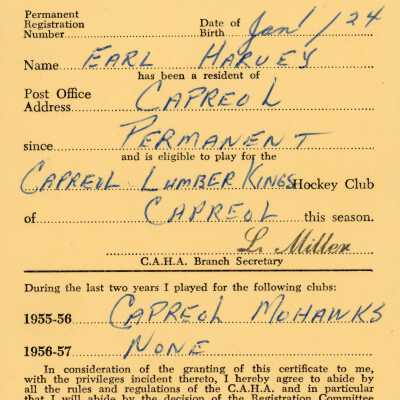 Permanent
Registration
Number
Date of
Birth Jan 1/24
Name EARL HARVEY
has been a resident of
Post Office
Address CAPREOL
since PERMANENT
and is eligible to play for the
CAPREOL LUMBER KINGS Hockey Club
of CAPREOL this season.
L. Miller
C.A.H.A. Branch Secretary
During the last two years I played for the following clubs:
1955-56 CAPREOL MOHAWKS
1956-57 NONE
In consideration of the granting of this certificate to me,
with the privileges incident thereto, I hereby agree to abide by
all the rules and regulations of the C.A.H.A. and in particular
that I will abide by the decision of the Registration Committee